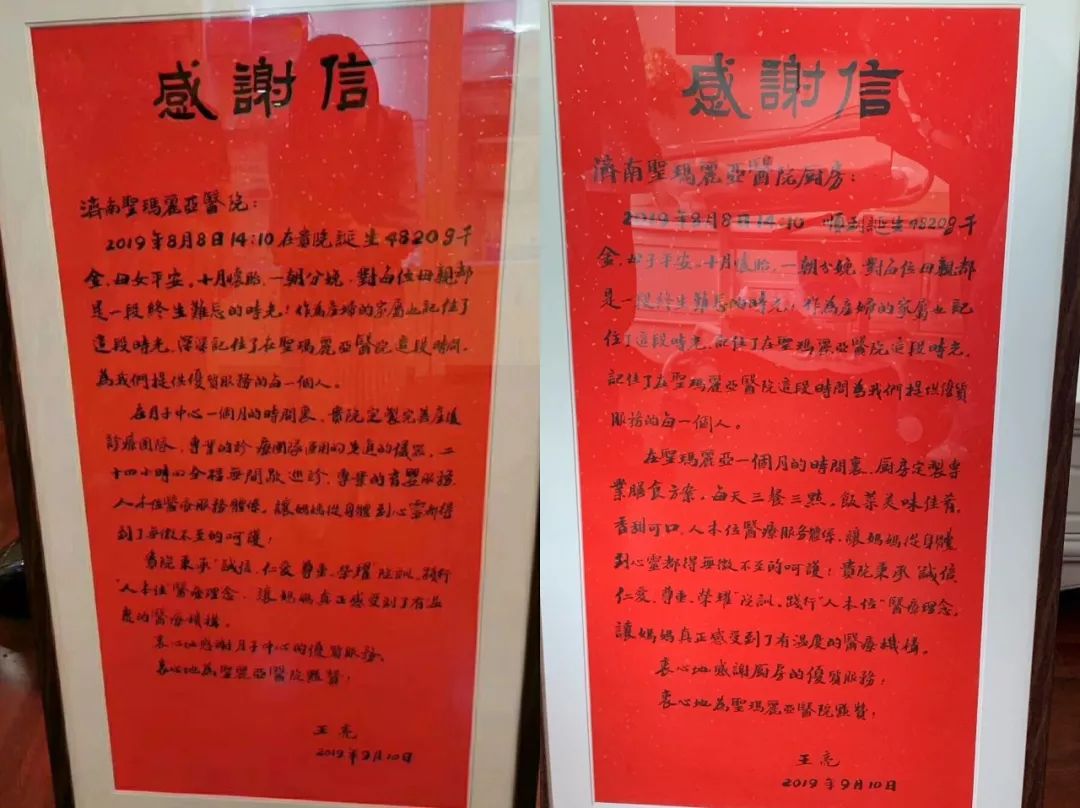 感謝信
濟南聖瑪麗亞醫院:
2019年8月8日14:10在貴院誕生4820g千
金,母女平安。十月懷胎,一朝分娩,對每位母親都
是一段終生難忘的時光!作為產婦的家屬也記住了
這段時光,深深記住了在聖瑪麗亞醫院這段時間,
為我們提供優質服務的每一個人。
在月子中心一個月的時間裏,貴院定製完善產後
診療團隊,專業的診療團隊 先進的儀器,二
十四小時 全程無間歇巡診,專業的育嬰服務,
人本位醫療服務體係,讓媽媽從身體到心靈都得
到了無微不至的呵護!
貴院秉承"誠信、仁愛、尊重、榮耀"院訓,踐行
"人本位"醫療理念,讓媽媽真正感受到了有溫
度的醫療機構。
衷心地感謝月子中心的優質服務,
衷心地為聖麗亞醫院點贊!
王亮
2019年9月10日
感謝信
濟南聖瑪麗亞醫院厨房:
2019年8月8日14:10 順利誕生4820g千
金,母子平安。十月懷胎,一朝分娩,對每位母親都
是一段終生難忘的時光!作為產婦的家屬也記
住了這段時光,記住了在聖瑪麗亞醫院這段時光,
記住了在聖瑪麗亞醫院這段時間為我們提供優質
服務的每一個人。
在聖瑪麗亞一個月的時間裏,厨房定製專
業膳食方案,每天三餐三點,飯菜美味佳肴,
香甜可口,人本位醫療服務體係,讓媽媽從身體
到心靈都得無微不至的呵護!貴院秉承"誠信、
仁愛、尊重、榮耀"院訓,踐行"人本位"醫療理念,
讓媽媽真正感受到了有溫度的醫療機構。
衷心地感謝厨房的優質服務!
衷心地為聖瑪麗亞醫院點贊!
王亮
2019年9月10日